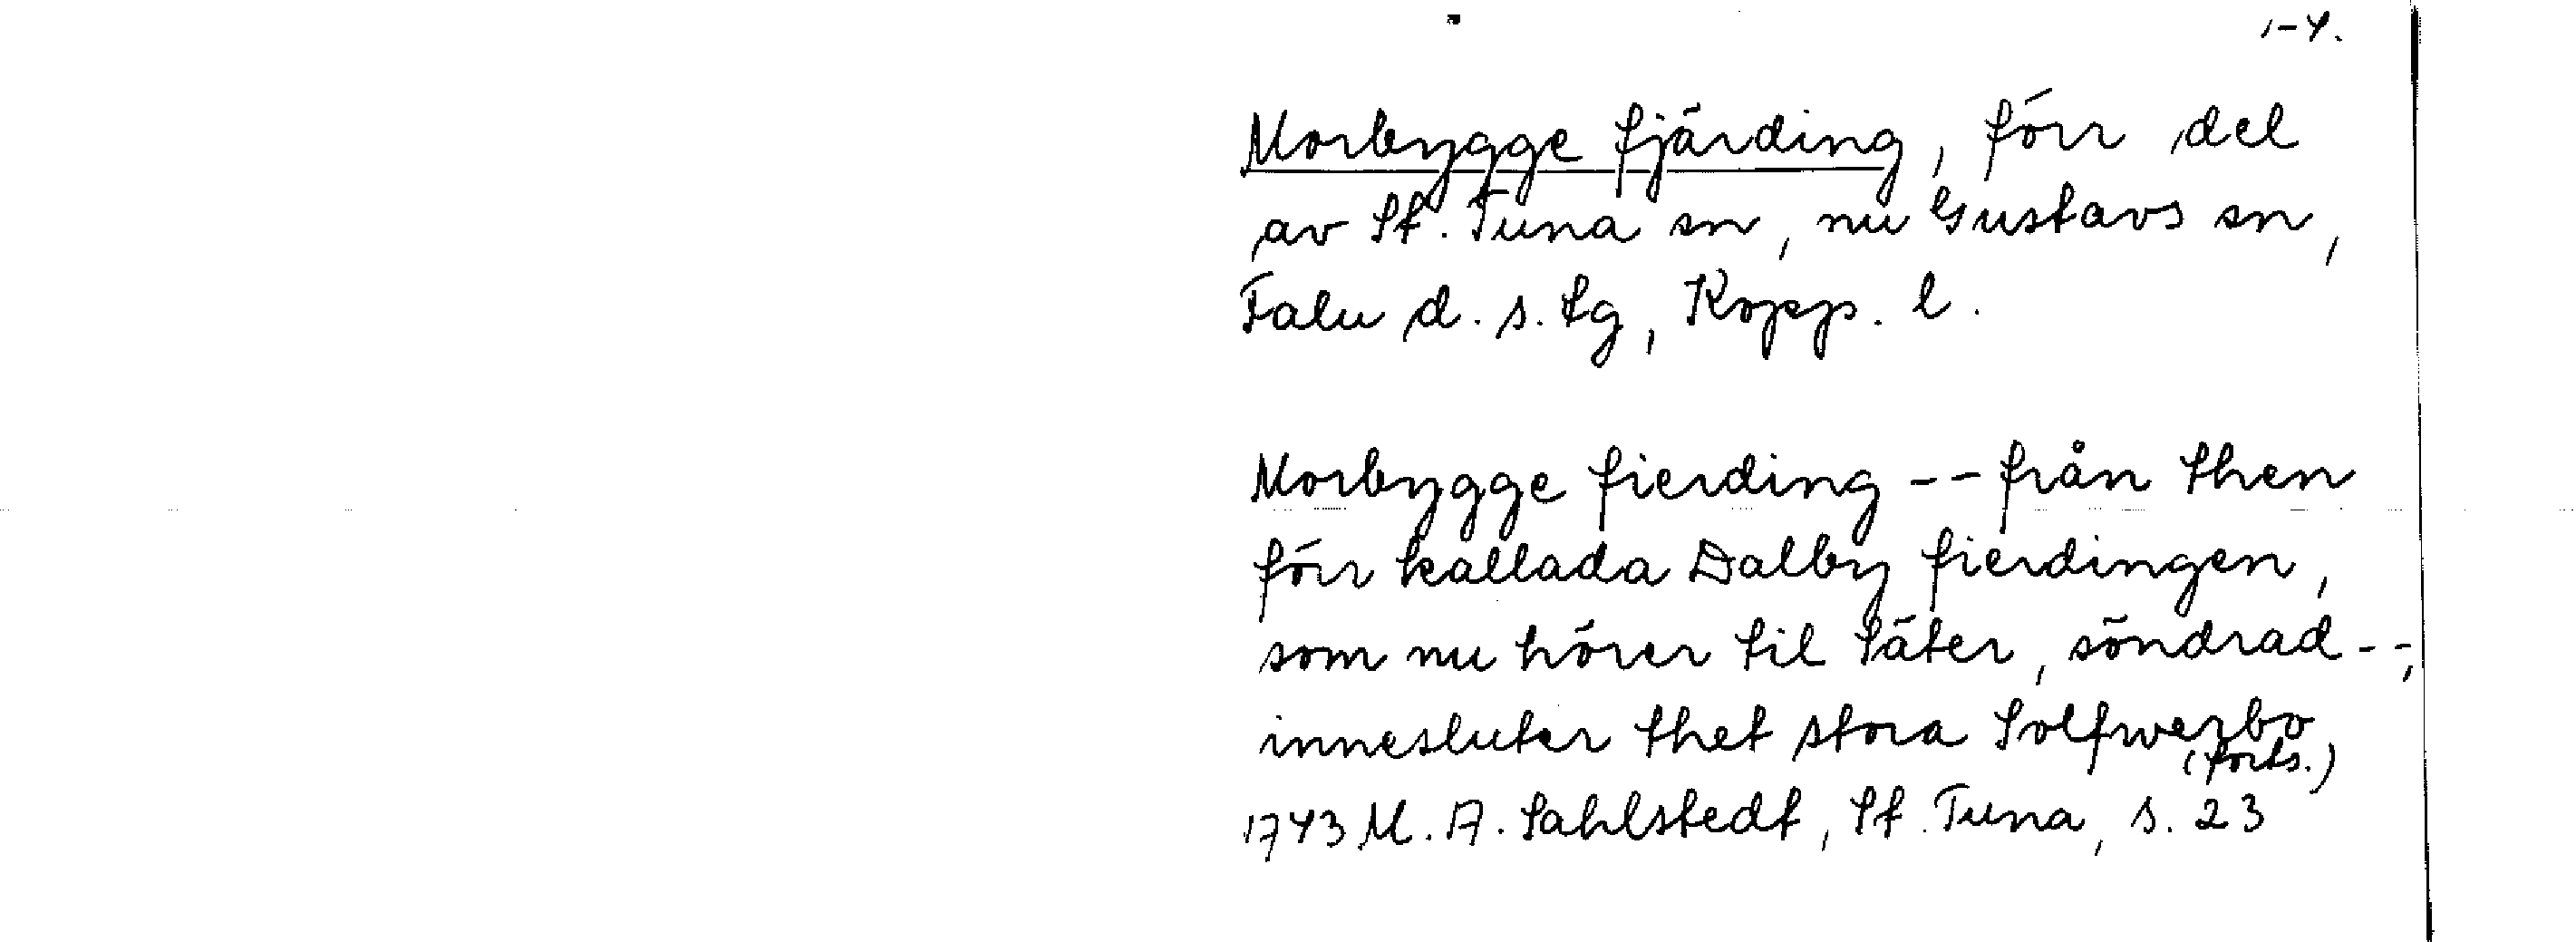 1-4.
Morbygge fjärding, förr del
av St. Tuna sn, nu Gustavs sn,
Falu d. s. tg, Kopp. l.
Morbygge fierding -- från then
förr kallada Dalby fierdingen,
som nu hörer til Säter, söndrad --,
innesluter thet stora Solfwerbo
(forts.)
1743 M. A. Sahlstedt, St. Tuna, s. 23